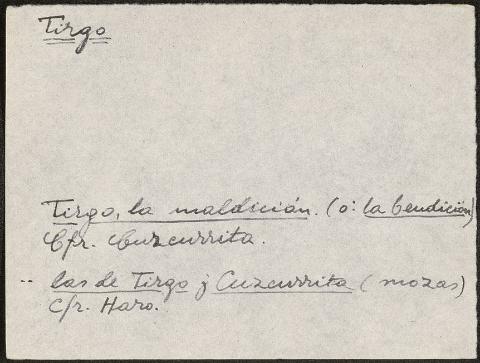 Tirgo
Tirgo, la maldición. (o: la bendición)
Cfr. Cuzcurrita.
-- las de Tirgo y Cuzcurrita (mozas)
Cfr. Haro.